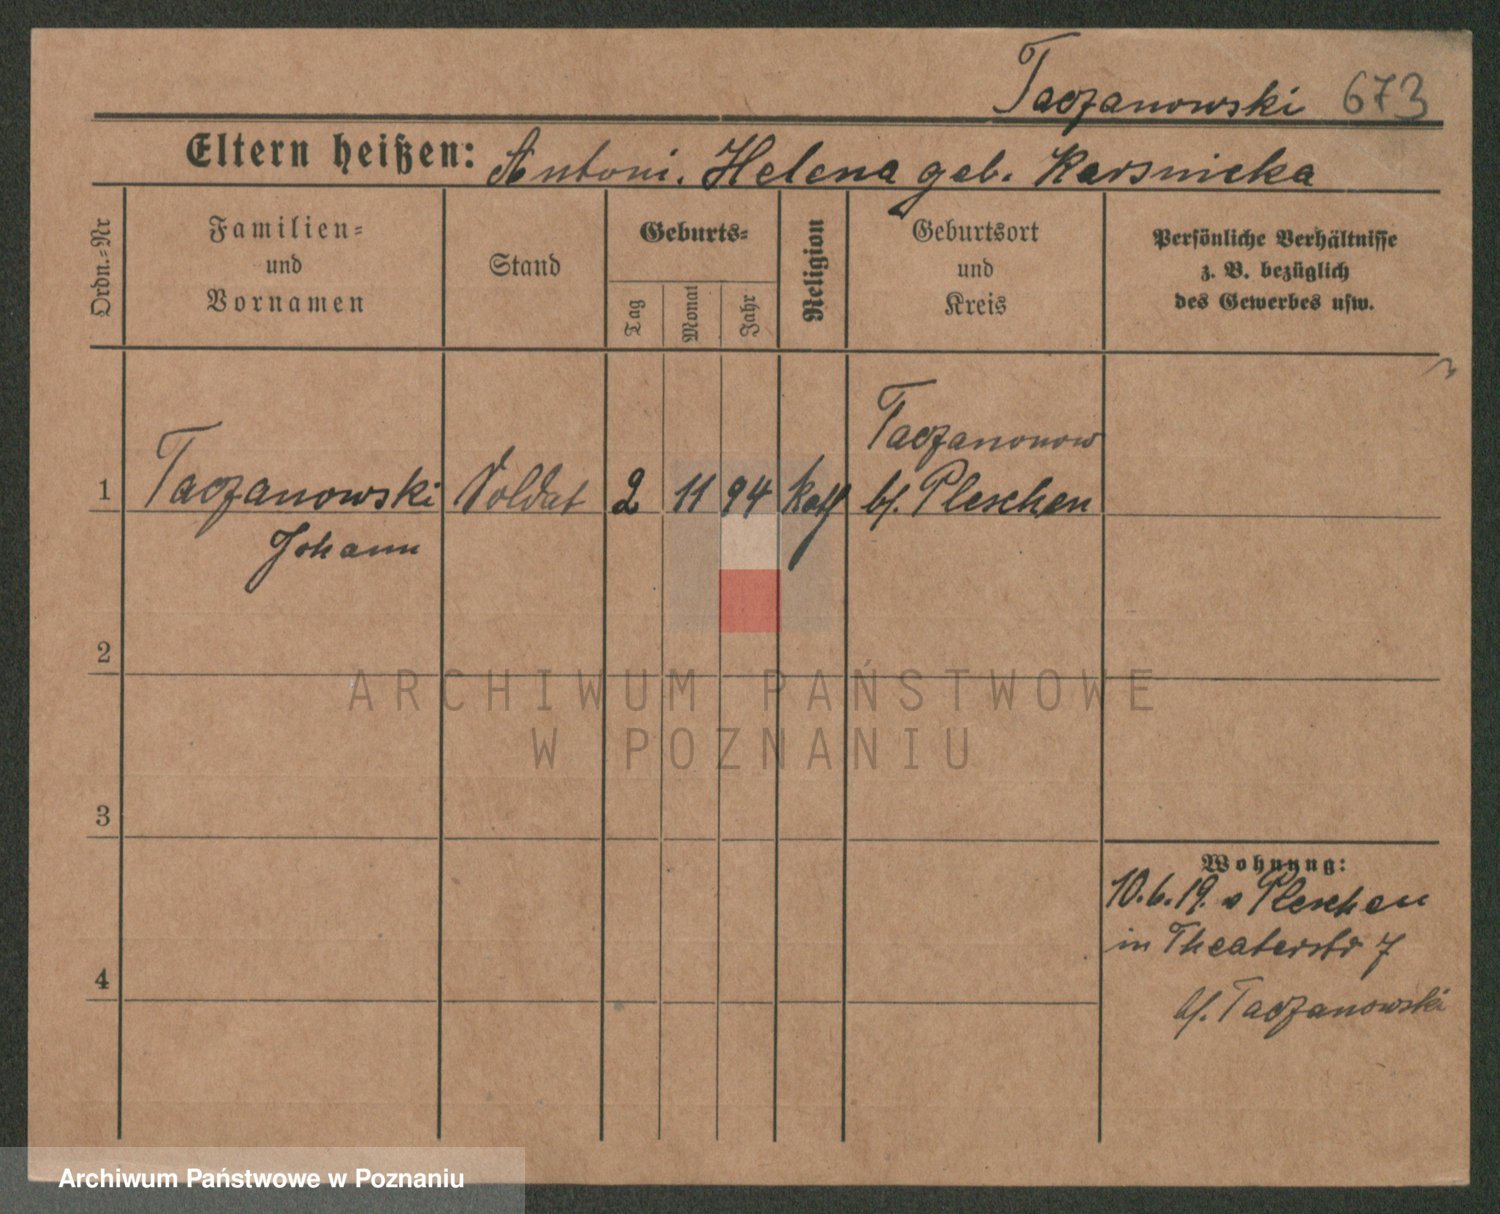 Taczanowski 673
Eltern heißen: Antoni. Helena geb. Karsnicka
Ordn.-Nr
Familien-
und
Vornamen
Stand
Geburts-
Tag
Monat
Jahr
Religion
Geburtsort
und
Kreis
Persönliche Verhältnisse
z. B. bezüglich
des Gewerbes usw.
Taczanonow
1 Taczanowski Soldat 2 11 94 Kath b/. Pleschen
Johann
2
ARCHIWUM PAŃSTWOWE
W POZNANIU
3
Wohnung:
10.6.19. v Pleschen
in Theaterstr 7
4
b/. Taczanowski
Archiwum Państwowe w Poznaniu